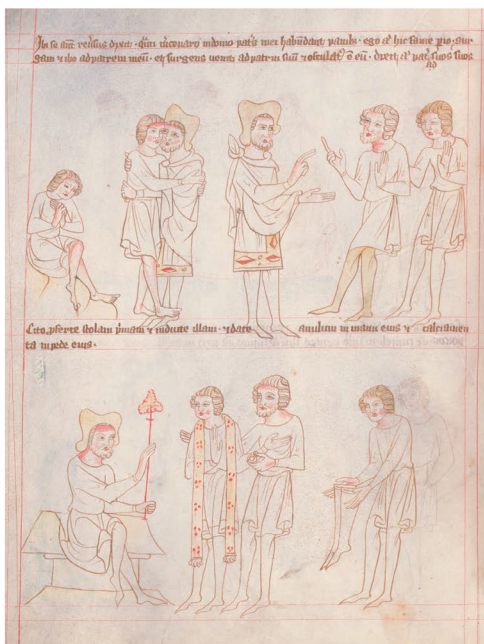 In se aut reversus dixit · q̄nti m̄cenarii in domo patris mei habundant panib; · ego at̄ hic fame p̄eo · sur-
gam ⁊ ibo ad patrem meū · et surgens uenit ad patrem suū ⁊ osculat᷒ ē eū · dixit at̄ pat̄ suos suos
ad
Cito p̄ferte stolam p̄mam ⁊ induite illam · ⁊ date anulum in manu eius ⁊ calciamen
ta in pede eius ·